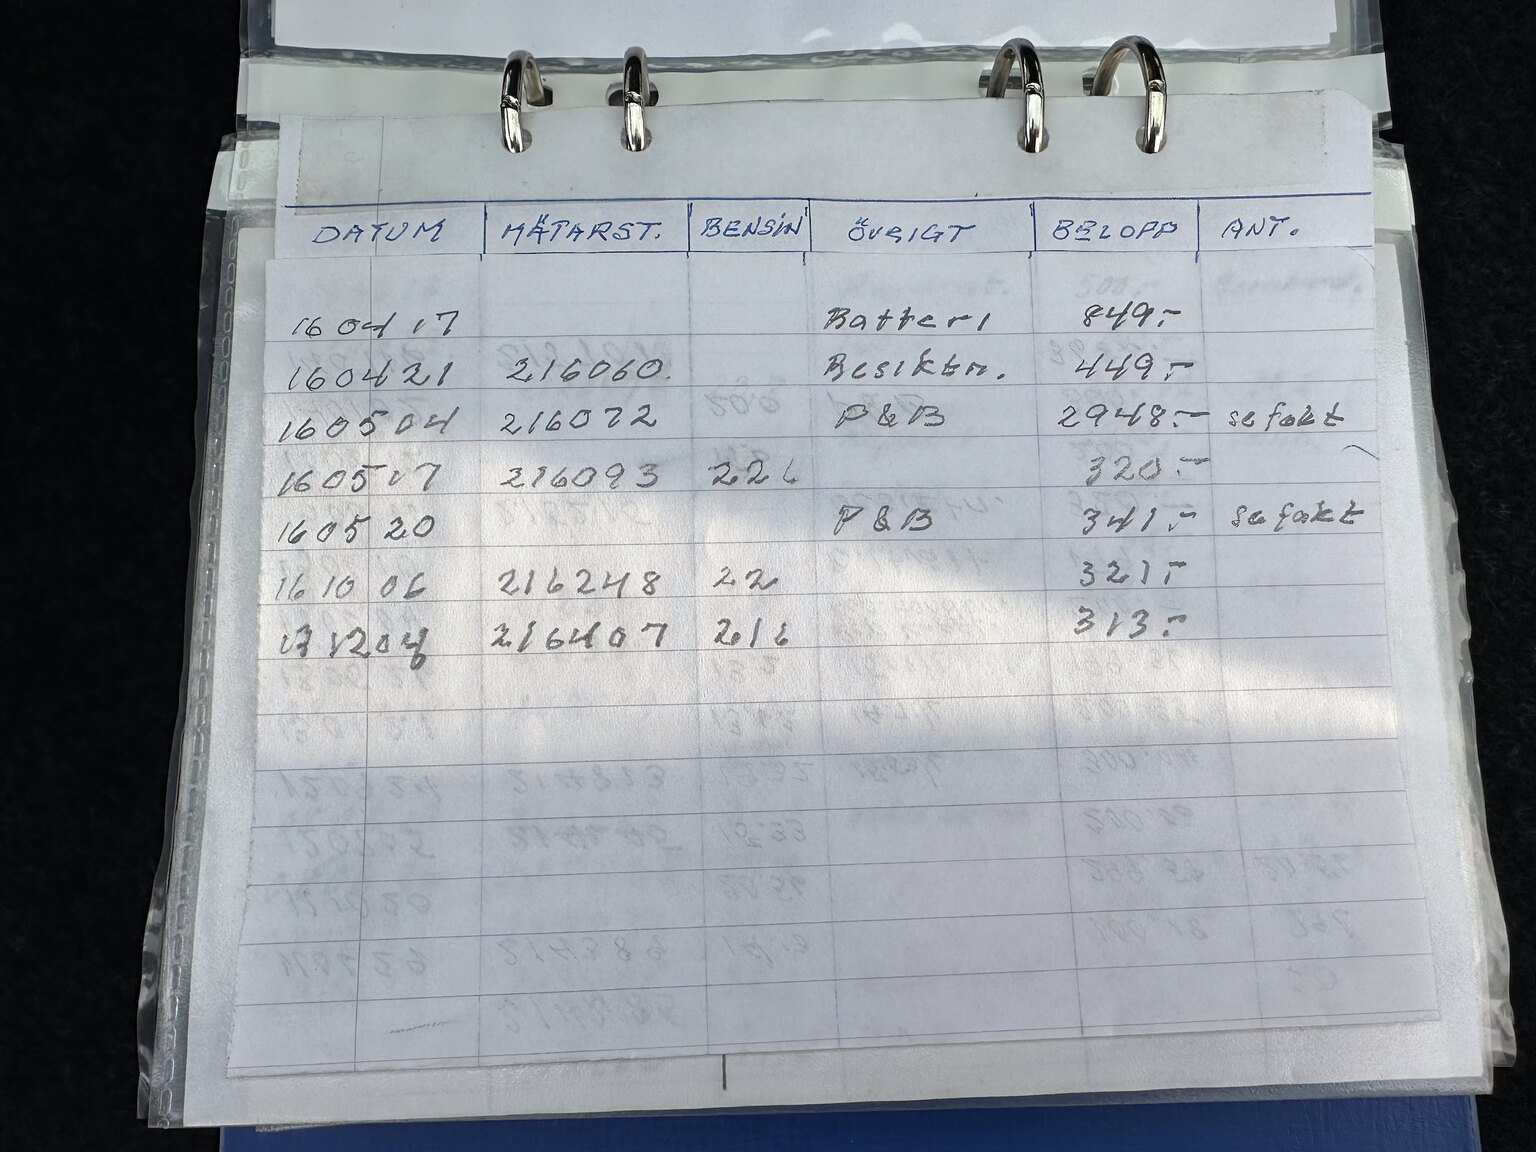 DATUM MÄTARST. BENSIN ÖVRIGT BELOPP ANT.
160417 Batteri 849:-
160421 216060. Besiktn. 449:-
160504 216072 P&B 2948:- se fakt
160517 216093 22 L 320:-
160520 P&B 341:- se fakt
161006 216248 22 321:-
171204 216407 21 L 313:-